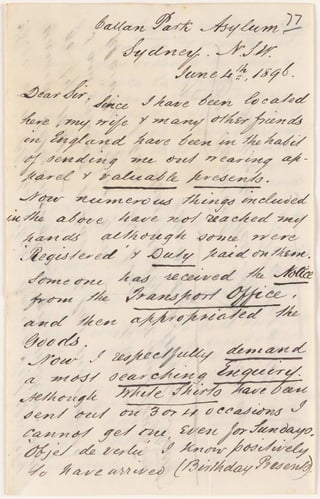 Callan Park Asylum 77
Sydney. N.S.W.
June 4th, 1896.
Dear Sir,
Since I have been located
here, my wife & many other friends
in England have been in the habit
of sending me out wearing ap-
parel & valuable presents.
Now numerous things included
in the above have not reached my
hands although some were
Registered & Duty paid on them.
Someone has received the Notice
from the Transport Office,
and then appropriated the
Goods.
Now I respectfully demand
a most searching Enquiry.
Although White Shirts have been
sent out on 3 or 4 occasions I
cannot get one, even for Sundays.
Objet de vertu I know positively
to have arrived (Birthday Presents)